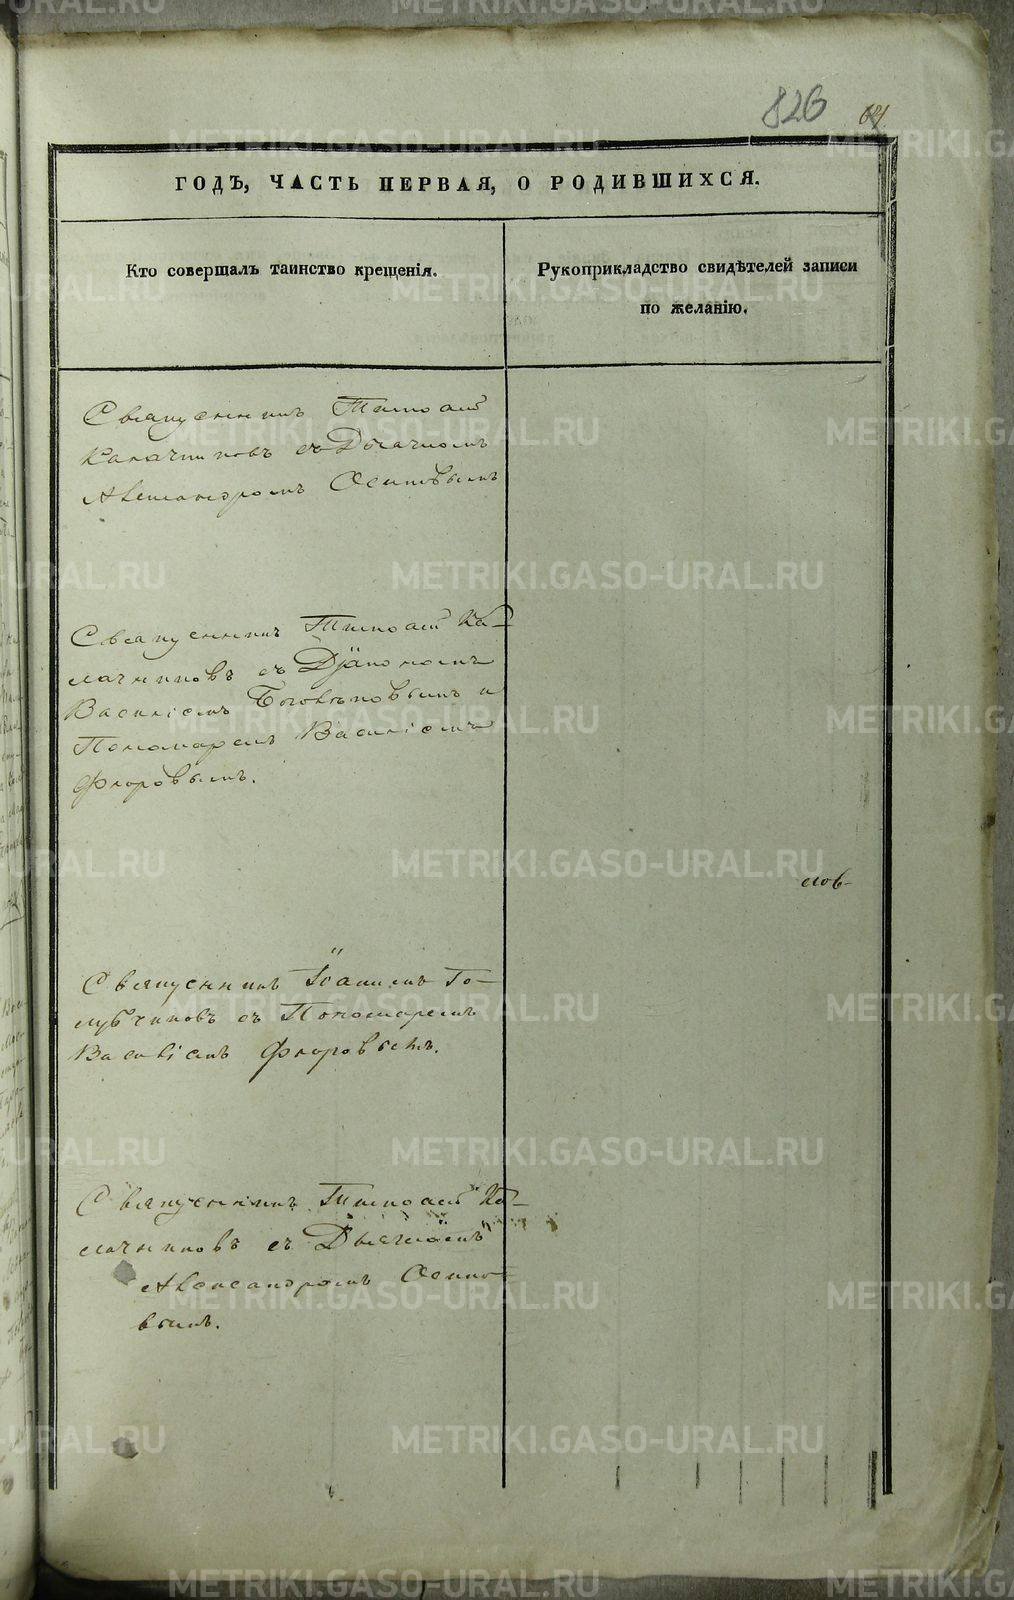 826
64
ГОДЪ, ЧАСТЬ ПЕРВАЯ, О РОДИВШИХСЯ.
Кто совершалъ таинство крещенія.
Рукоприкладство свидѣтелей записи
по желанію.
Священникъ Тимоѳей
Калачниковъ съ Дьячкомъ
Александромъ Осиповымъ
Священникъ Тимоѳей Ка-
лачниковъ съ Діакономъ
Василіемъ Боголѣповымъ и
Пономаремъ Василіемъ
Флоровымъ.
слов-
Священникъ Іоаннъ Го-
лубчиковъ съ Пономаремъ
Василіемъ Флоровымъ.
Священникъ Тимоѳей Ка-
лачниковъ съ Дьячкомъ
Александромъ Осипо-
вымъ.
METRIKI.GASO-URAL.RU